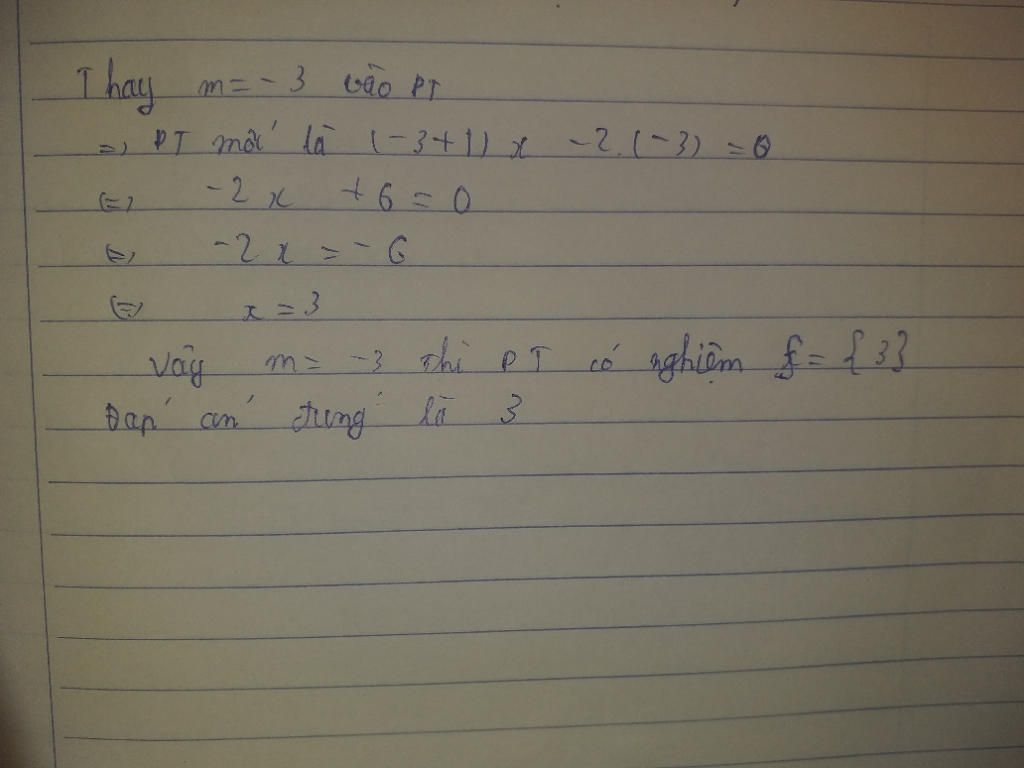 Thay m = -3 vào PT
=> PT mới là (-3+1) x -2.(-3) = 0
<=> -2x +6 = 0
<=> -2x = -6
<=> x = 3
Vậy m = -3 thì PT có nghiệm S = {3}
Đáp án đúng là 3